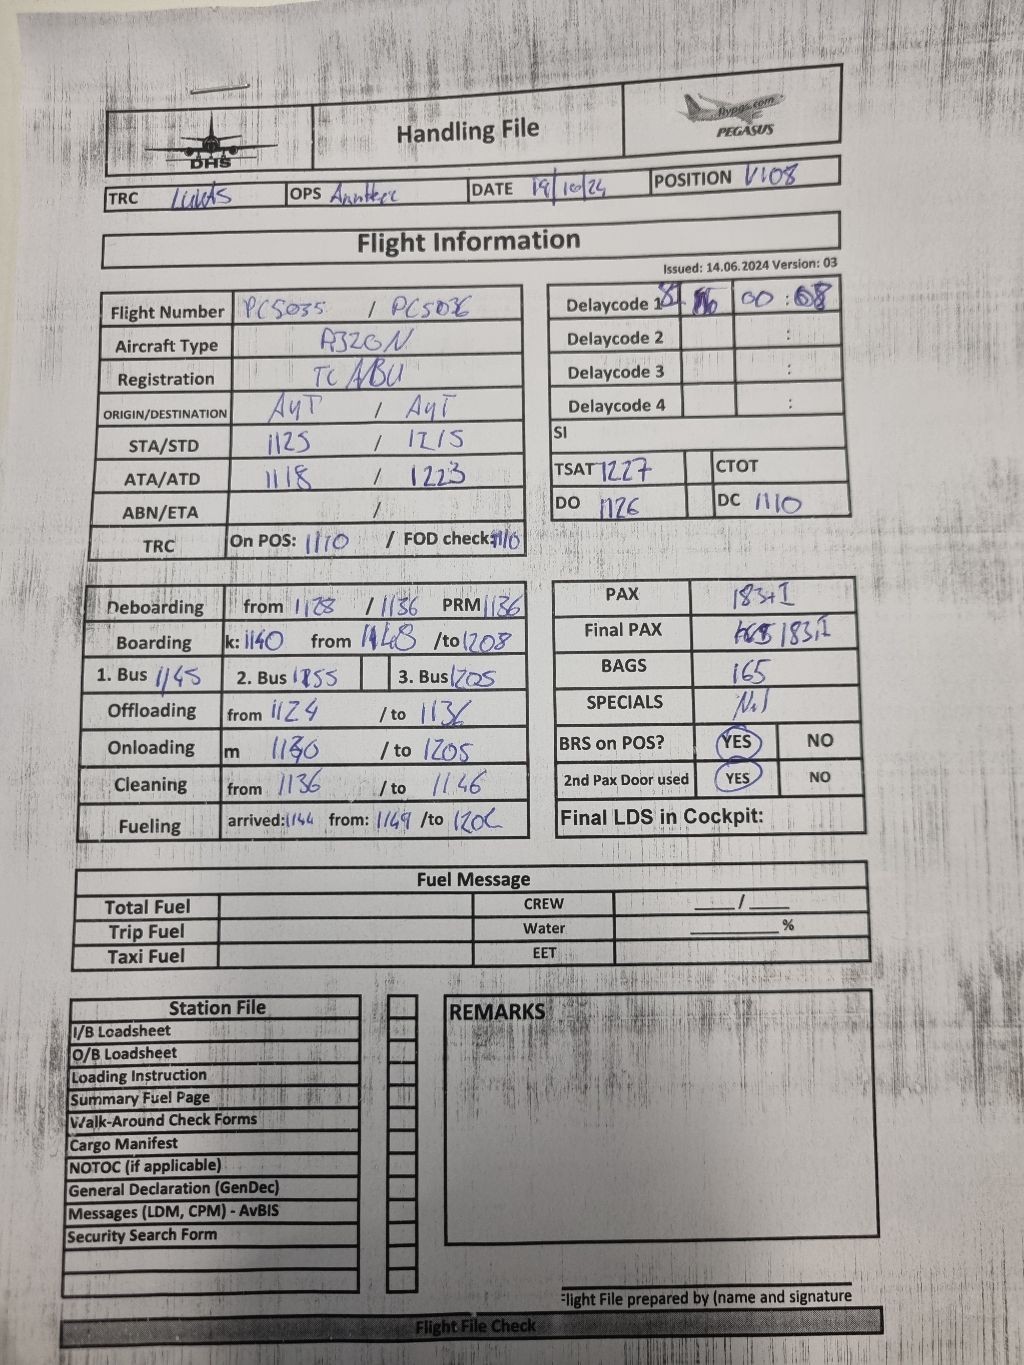 DHS
Handling File
flypgs.com
PEGASUS
TRC OPS DATE 19/10/24 POSITION V108
Flight Information
Issued: 14.06.2024 Version: 03
Flight Number PC5035 / PC5036
Aircraft Type A320N
Registration TC NBU
ORIGIN/DESTINATION AYT / AYT
STA/STD 1125 / 1215
ATA/ATD 1118 / 1223
ABN/ETA /
TRC On POS: 1110 / FOD check: 1110
Delaycode 1 81 00 : 08
Delaycode 2 :
Delaycode 3 :
Delaycode 4 :
SI
TSAT 1227 CTOT
DO 1126 DC 1110
Deboarding from 1128 / 1136 PRM 1136
Boarding k: 1140 from 1148 /to 1208
1. Bus 1145 2. Bus 1155 3. Bus 1205
Offloading from 1124 / to 1136
Onloading m 1130 / to 1205
Cleaning from 1136 / to 1146
Fueling arrived: 1144 from: 1149 /to
PAX 183+I
Final PAX 183+I
BAGS 165
SPECIALS Nil
BRS on POS? YES NO
2nd Pax Door used YES NO
Final LDS in Cockpit:
Fuel Message
Total Fuel CREW ____/____
Trip Fuel Water ________%
Taxi Fuel EET
Station File
I/B Loadsheet
O/B Loadsheet
Loading Instruction
Summary Fuel Page
Walk-Around Check Forms
Cargo Manifest
NOTOC (if applicable)
General Declaration (GenDec)
Messages (LDM, CPM) - AvBIS
Security Search Form
REMARKS
Flight File prepared by (name and signature
Flight File Check